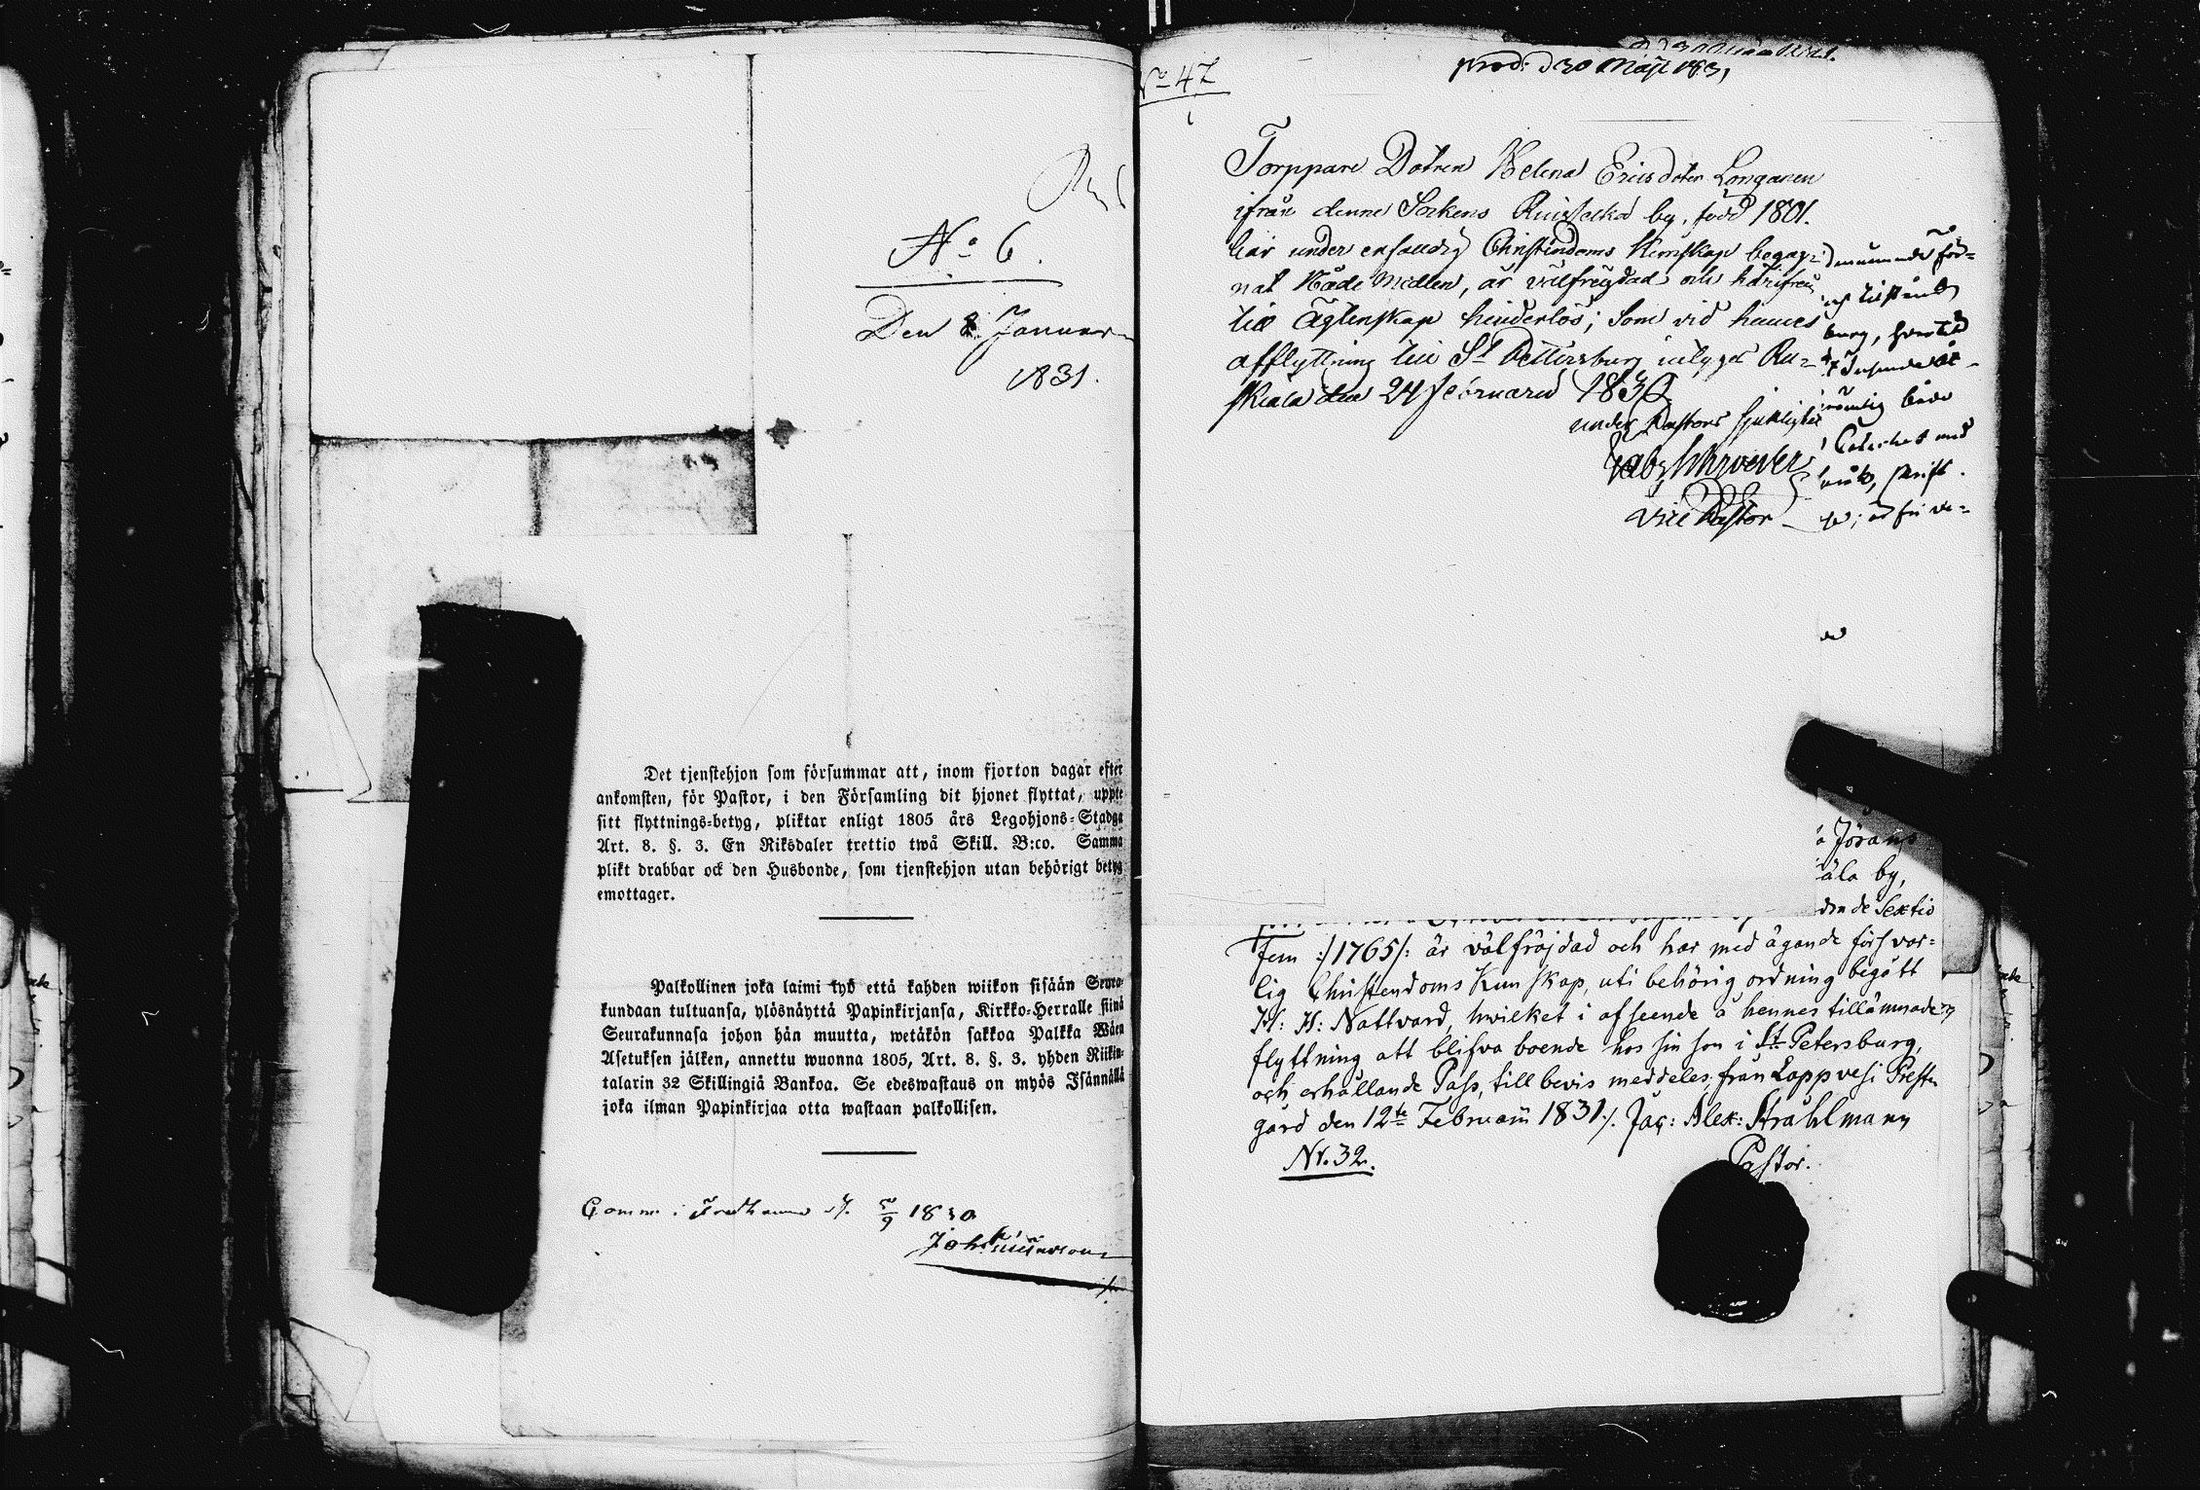 No 6.
Den 8 Januar
1831.
Det tjenstehjon som försummar att, inom fjorton dagar efter
ankomsten, för Pastor, i den Församling dit hjonet flyttat, uppte
sitt flyttnings-betyg, pliktar enligt 1805 års Legohjons-Stadga
Art. 8. §. 3. En Riksdaler trettio twå Skill. B:co. Samma
plikt drabbar ock den Husbonde, som tjenstehjon utan behörigt betyg
emottager.
Palkollinen joka laimi lyö että kahden wiikon sisään Seura-
kundaan tultuansa, ylösnäyttä Papinkirjansa, Kirkko-Herralle siinä
Seurakunnasa johon hän muutta, wetäkön sakkoa Palkka Wäen
Asetuksen jälken, annettu wuonna 1805, Art. 8. §. 3. yhden Riikin-
talarin 32 Skillingiä Bankoa. Se edeswastaus on myös Isännällä
joka ilman Papinkirjaa otta wastaan palkollisen.
1830
No 47
prod: d 30 Maji 1831
Torppare Dotren Helena Ericsdoter Longanen
ifrån denne Sockens by, född 1801.
har under enfaldig Christendoms Kunskap begag-
nat Nåde Medlen, är välfreydad och härifrån
till Ägtenskap hinderlös; Som vid hennes
afflyttning till St Pettersburg intygat Ru-
skiala den 24 februarii 1830
under Pastors sjuklighet
Vice Pastor
Jörans
äla by,
den de Sextio
fem :/1765/: är välfräjdad och har med ägande försvar-
lig Christendoms Kunskap, uti behörig ordning begått
H: H: Nattvard, hvilket i afseende å hennes tillämnade
flyttning att blifva boende hos sin son i St Petersburg,
och erhållande Pass, till bevis meddeles, från Lappvesi Preste
gård den 12te Februarii 1831./. Jac: Alex: Strahlmann
Pastor.
Nr. 32.